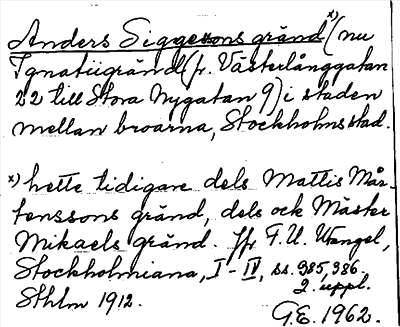 Anders Siggesons gränd x) (nu
Ignatiigränd (fr. Västerlånggatan
22 till Stora Nygatan 9) i staden
mellan broarna, Stockholms stad.
x) hette tidigare dels Mattis Mår-
tenssons gränd, dels ock Mäster
Mikaels gränd. Jfr F.U. Wrangel,
Stockholmiana, I-IV, ss. 385, 386.
2. uppl.
Sthlm 1912.
G.E. 1962.